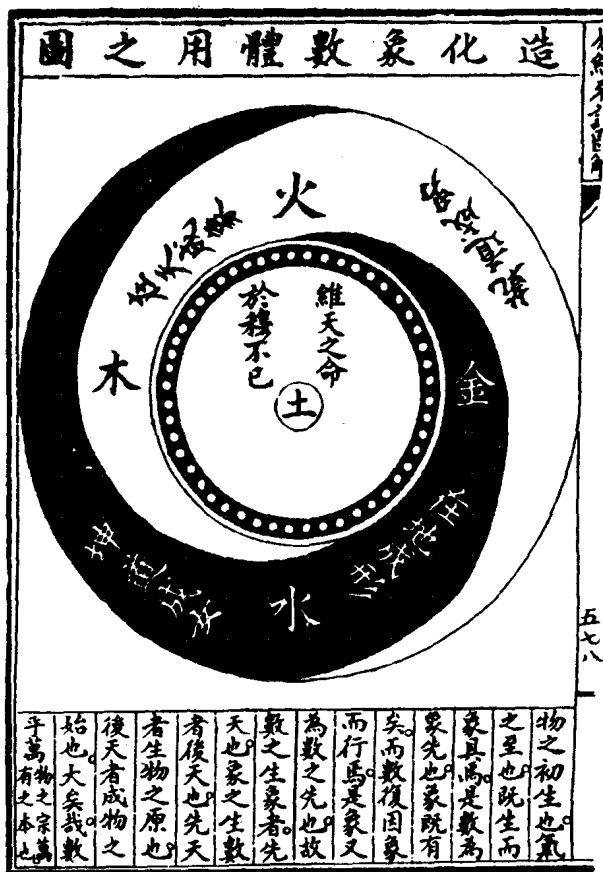 造化象數體用之圖
經來註圖解
五七八
火
乾道成男
在天成象
維天之命
於穆不已
土
金
木
在地成形
坤道成女
水
物之初生也。氣
之至也。既生而
象具焉。是數為
象先也。象既有
矣。而數復因象
而行焉。是象又
為數之先也。故
數之生象者。先
天也。象之生數
者後天也。先天
者生物之原也。
後天者成物之
始也。大矣哉。數
乎萬物之宗萬
有之本也。